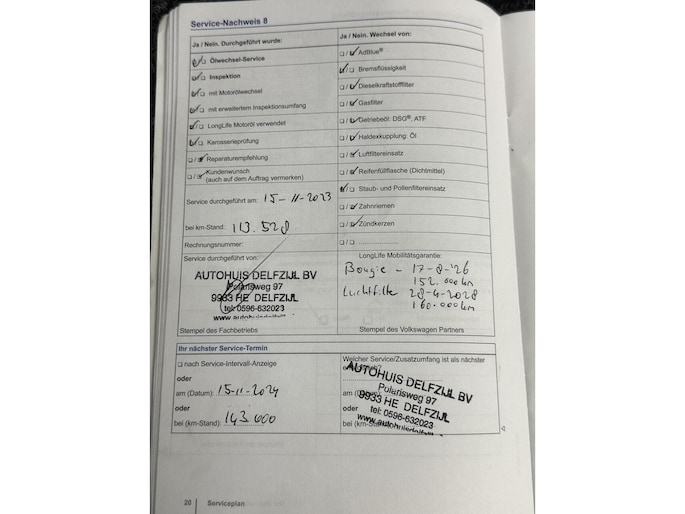 Service-Nachweis 8
Ja / Nein. Durchgeführt wurde:
Ölwechsel-Service
Inspektion
mit Motorölwechsel
mit erweitertem Inspektionsumfang
LongLife Motoröl verwendet
Karosserieprüfung
Reparaturempfehlung
Kundenwunsch
(auch auf dem Auftrag vermerken)
Service durchgeführt am: 15-11-2023
bei km-Stand: 113.528
Rechnungsnummer:
Service durchgeführt von:
AUTOHUIS DELFZIJL BV
Polarisweg 97
9933 HE DELFZIJL
tel: 0596-632023
Stempel des Fachbetriebs
Ja / Nein. Wechsel von:
AdBlue®
Bremsflüssigkeit
Dieselkraftstofffilter
Gasfilter
Getriebeöl: DSG®, ATF
Haldexkupplung: Öl
Luftfiltereinsatz
Reifenfüllflasche (Dichtmittel)
Staub- und Pollenfiltereinsatz
Zahnriemen
Zündkerzen
LongLife Mobilitätsgarantie:
Bougie - 17-8-'26
152.000 km
Luchtfilter 28-4-2028
160.000 km
Stempel des Volkswagen Partners
Ihr nächster Service-Termin
nach Service-Intervall-Anzeige
oder
am (Datum): 15-11-2024
oder
bei (km-Stand): 143 000
Welcher Service/Zusatzumfang ist als nächster
AUTOHUIS DELFZIJL BV
Polarisweg 97
9933 HE DELFZIJL
tel: 0596-632023
oder
20 Serviceplan